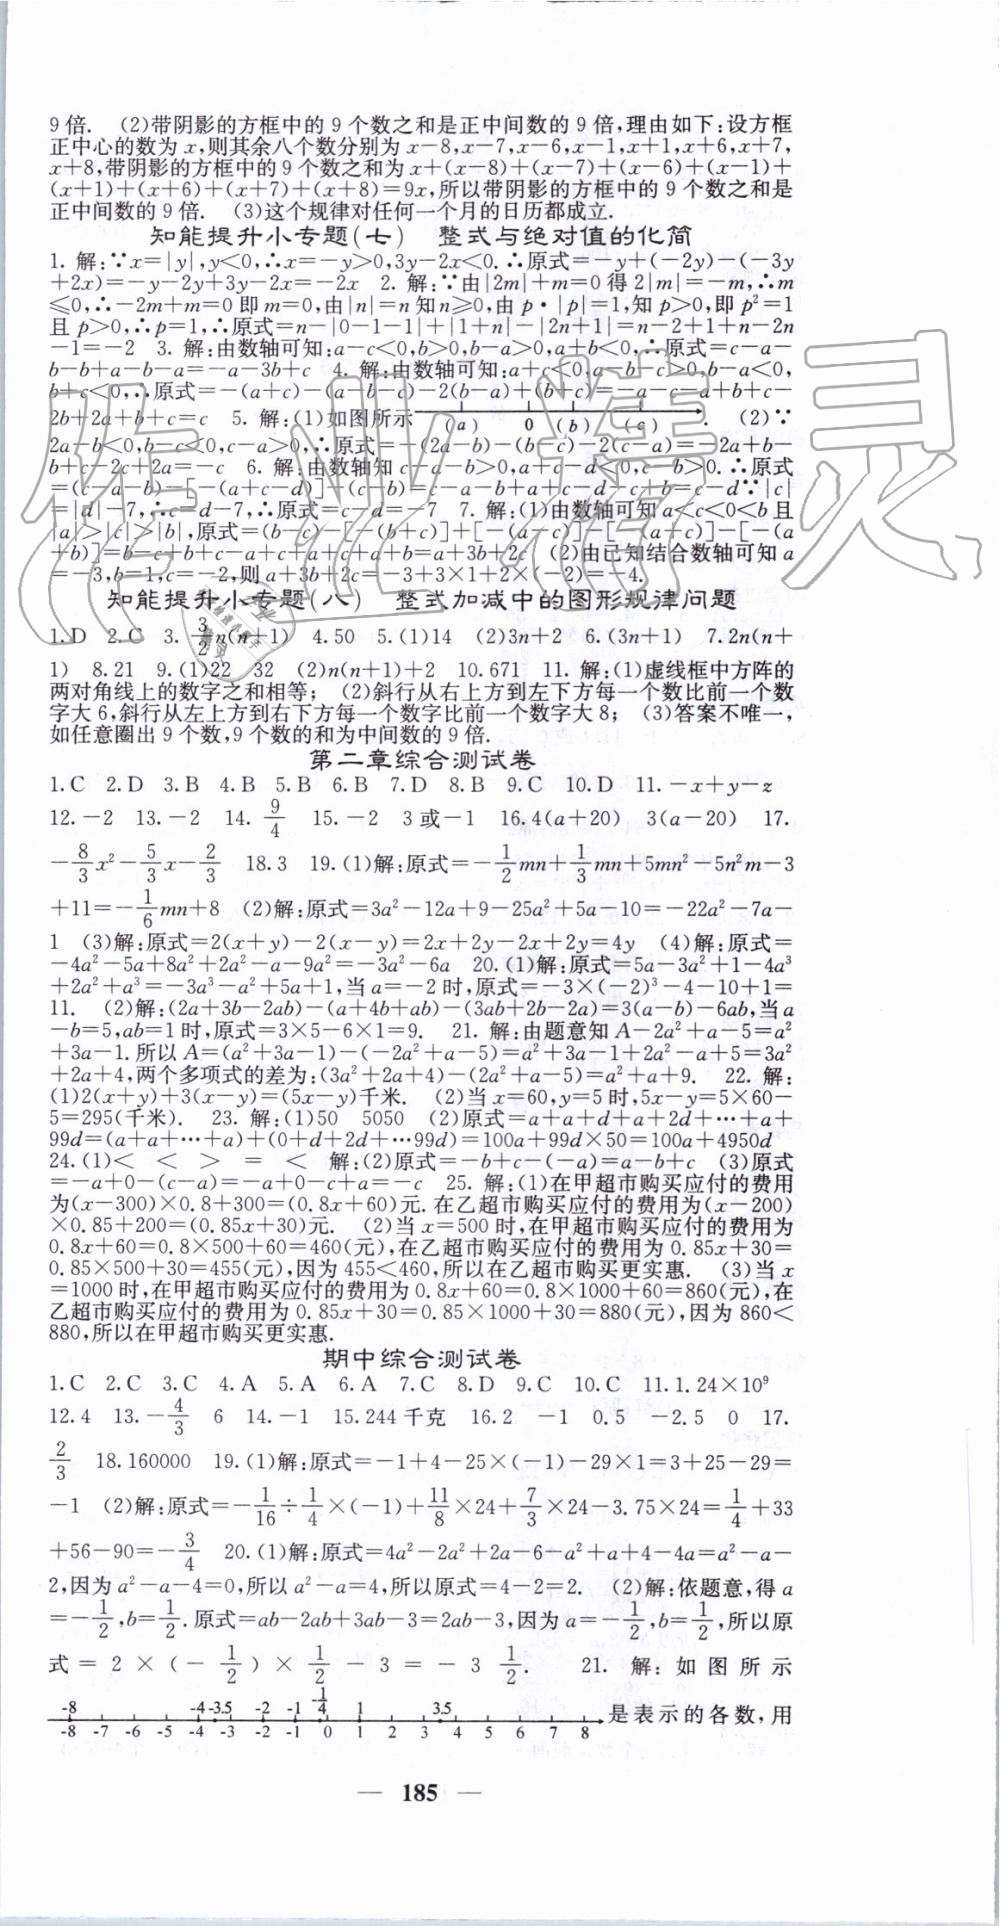 9倍. (2)带阴影的方框中的9个数之和是正中间数的9倍,理由如下:设方框
正中心的数为x,则其余八个数分别为x-8,x-7,x-6,x-1,x+1,x+6,x+7,
x+8,带阴影的方框中的9个数之和为x+(x-8)+(x-7)+(x-6)+(x-1)+
(x+1)+(x+6)+(x+7)+(x+8)=9x,所以带阴影的方框中的9个数之和是
正中间数的9倍. (3)这个规律对任何一个月的日历都成立.
知能提升小专题(七) 整式与绝对值的化简
1. 解:∵x=|y|,y<0,∴x=-y>0,3y-2x<0.∴原式=-y+(-2y)-(-3y
+2x)=-y-2y+3y-2x=-2x 2. 解:∵由|2m|+m=0得2|m|=-m,∴m
≤0,∴-2m+m=0即m=0,由|n|=n知n≥0,由p·|p|=1,知p>0,即p²=1
且p>0,∴p=1,∴原式=n-|0-1-1|+|1+n|-|2n+1|=n-2+1+n-2n
-1=-2 3. 解:由数轴可知:a-c<0,b>0,b-a>0,a+b<0,∴原式=c-a-
b-b+a-b-a=-a-3b+c 4. 解:由数轴可知:a+c<0,a-b-c>0,b-a<0,
b+c<0,∴原式=-(a+c)-(a-b-c)-2(b-a)+(b+c)=-a-c-a+b+c-
2b+2a+b+c=c 5. 解:(1)如图所示 (a) 0 (b) (c) . (2)∵
2a-b<0,b-c<0,c-a>0,∴原式=-(2a-b)-(b-c)-2(c-a)=-2a+b-
b+c-2c+2a=-c 6. 解:由数轴知c-a-b>0,a+c-d<0,c-b>0.∴原式
=(c-a-b)-[-(a+c-d)]-(c-b)=c-a-b+a+c-d-c+b=c-d∵|c|
=|d|-7,∴c-d-7,∴原式=c-d=-7 7. 解:(1)由数轴可知a<c<0<b且
|a|>|c|>|b|,原式=(b-c)-[-(b+c)]+[-(a-c)]-[-(a+c)]-[-(a
+b)]=b-c+b+c-a+c+a+c+a+b=a+3b+2c (2)由已知结合数轴可知a
=-3,b=1,c=-2,则a+3b+2c=-3+3×1+2×(-2)=-4.
知能提升小专题(八) 整式加减中的图形规律问题
1.D 2.C 3. 3/2 n(n+1) 4.50 5.(1)14 (2)3n+2 6.(3n+1) 7.2n(n+
1) 8.21 9.(1)22 32 (2)n(n+1)+2 10.671 11. 解:(1)虚线框中方阵的
两对角线上的数字之和相等; (2)斜行从右上方到左下方每一个数比前一个数
字大6,斜行从左上方到右下方每一个数字比前一个数字大8; (3)答案不唯一,
如任意圈出9个数,9个数的和为中间数的9倍.
第二章综合测试卷
1.C 2.D 3.B 4.B 5.B 6.B 7.D 8.B 9.C 10.D 11.-x+y-z
12.-2 13.-2 14. 9/4 15.-2 3或-1 16.4(a+20) 3(a-20) 17.
-8/3 x²-5/3 x-2/3 18.3 19.(1)解:原式=-1/2 mn+1/3 mn+5mn²-5n²m-3
+11=-1/6 mn+8 (2)解:原式=3a²-12a+9-25a²+5a-10=-22a²-7a-
1 (3)解:原式=2(x+y)-2(x-y)=2x+2y-2x+2y=4y (4)解:原式=
-4a²-5a+8a²+2a²-a-9a²=-3a²-6a 20.(1)解:原式=5a-3a²+1-4a³
+2a²+a³=-3a³-a²+5a+1,当a=-2时,原式=-3×(-2)³-4-10+1=
11. (2)解:(2a+3b-2ab)-(a+4b+ab)-(3ab+2b-2a)=3(a-b)-6ab,当a
-b=5,ab=1时,原式=3×5-6×1=9. 21. 解:由题意知A-2a²+a-5=a²
+3a-1.所以A=(a²+3a-1)-(-2a²+a-5)=a²+3a-1+2a²-a+5=3a²
+2a+4,两个多项式的差为:(3a²+2a+4)-(2a²+a-5)=a²+a+9. 22. 解:
(1)2(x+y)+3(x-y)=(5x-y)千米. (2)当x=60,y=5时,5x-y=5×60-
5=295(千米). 23. 解:(1)50 5050 (2)原式=a+a+d+a+2d+…+a+
99d=(a+a+…+a)+(0+d+2d+…99d)=100a+99d×50=100a+4950d
24.(1)< < > = < 解:(2)原式=-b+c-(-a)=a-b+c (3)原式
=-a+0-(c-a)=-a+0-c+a=-c 25. 解:(1)在甲超市购买应付的费用
为(x-300)×0.8+300=(0.8x+60)元.在乙超市购买应付的费用为(x-200)
×0.85+200=(0.85x+30)元. (2)当x=500时,在甲超市购买应付的费用为
0.8x+60=0.8×500+60=460(元),在乙超市购买应付的费用为0.85x+30=
0.85×500+30=455(元),因为455<460,所以在乙超市购买更实惠. (3)当x
=1000时,在甲超市购买应付的费用为0.8x+60=0.8×1000+60=860(元),在
乙超市购买应付的费用为0.85x+30=0.85×1000+30=880(元),因为860<
880,所以在甲超市购买更实惠.
期中综合测试卷
1.C 2.C 3.C 4.A 5.A 6.A 7.C 8.D 9.C 10.C 11.1.24×10⁹
12.4 13.-4/3 6 14.-1 15.244千克 16.2 -1 0.5 -2.5 0 17.
2/3 18.160000 19.(1)解:原式=-1+4-25×(-1)-29×1=3+25-29=
-1 (2)解:原式=-1/16÷1/4×(-1)+11/8×24+7/3×24-3.75×24=1/4+33
+56-90=-3/4 20.(1)解:原式=4a²-2a²+2a-6-a²+a+4-4a=a²-a-
2,因为a²-a-4=0,所以a²-a=4,所以原式=4-2=2. (2)解:依题意,得a
=-1/2,b=1/2.原式=ab-2ab+3ab-3=2ab-3,因为a=-1/2,b=1/2,所以原
式=2×(-1/2)×1/2-3=-3 1/2. 21. 解:如图所示
-8 -4 -3.5 -2 -1 -1/4 1 3.5
-8 -7 -6 -5 -4 -3 -2 -1 0 1 2 3 4 5 6 7 8 是表示的各数,用
— 185 —
作业精灵